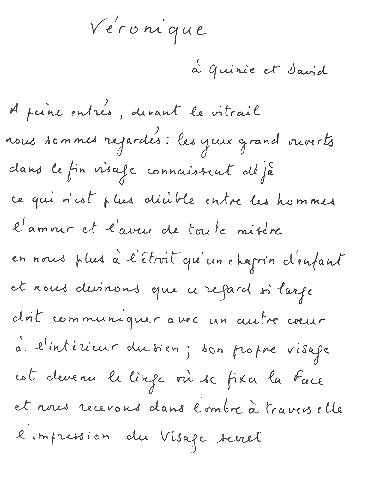 Véronique
à Quinie et David
A peine entrés, devant le vitrail
nous sommes regardés : les yeux grand ouverts
dans le fin visage connaissent déjà
ce qui n'est plus dicible entre les hommes
l'amour et l'aveu de toute misère
en nous plus à l'étroit qu'un chagrin d'enfant
et nous devinons que ce regard si large
doit communiquer avec un autre cœur
à l'intérieur du sien ; son propre visage
est devenu le linge où se fixa la Face
et nous recevons dans l'ombre à travers elle
l'impression du Visage secret